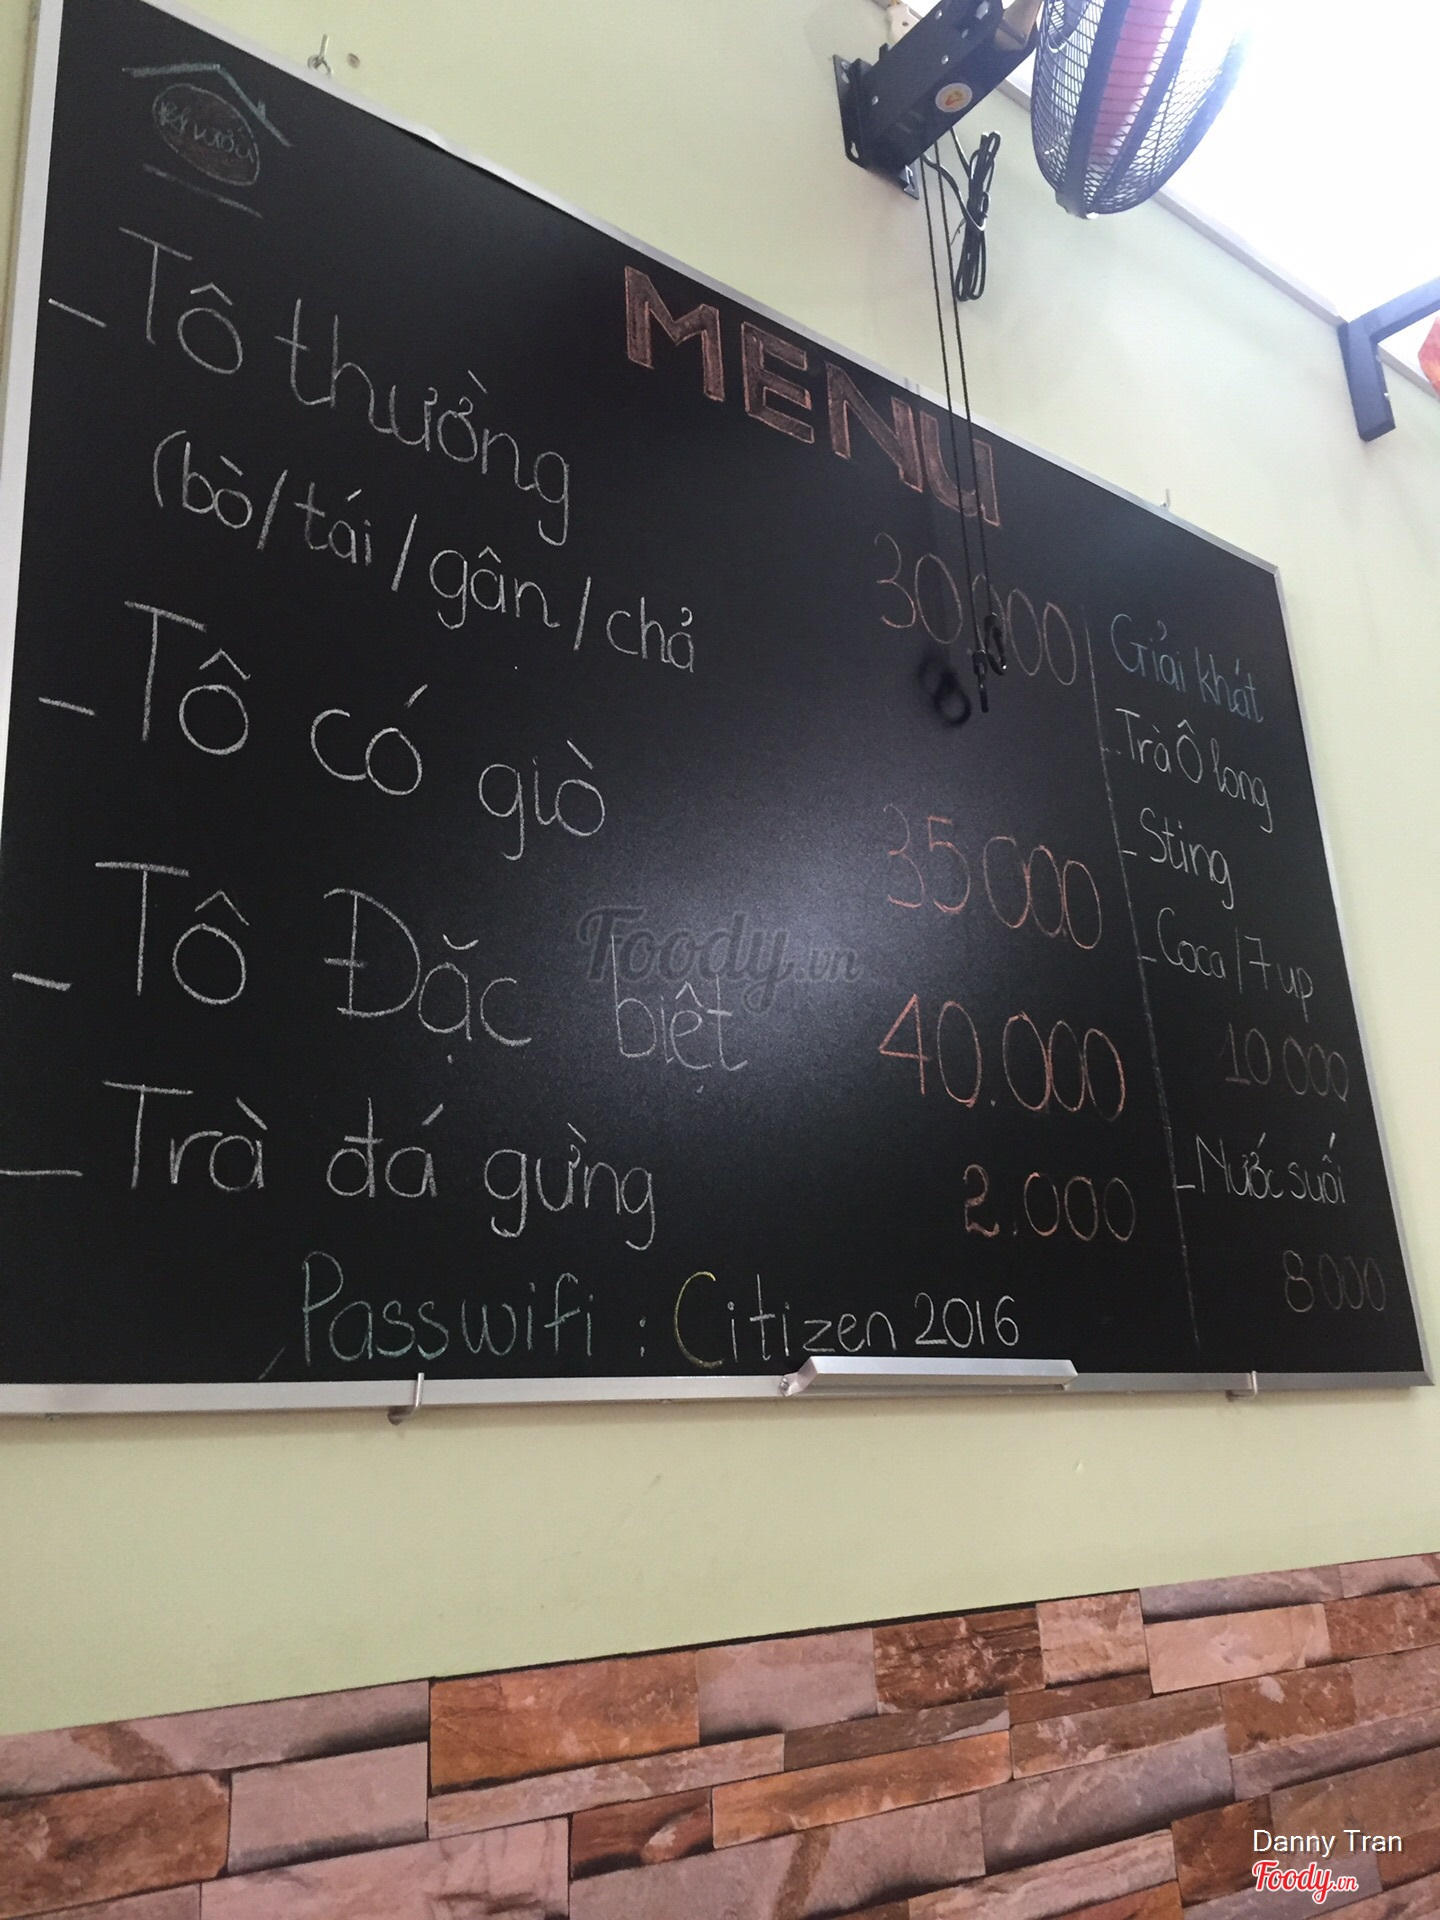 MENU
- Tô thường 30.000
(bò/tái/gân/chả
- Tô có giò 35.000
- Tô Đặc biệt 40.000
- Trà đá gừng 2.000
Pass wifi : Citizen 2016
Giải khát
- Trà Ô long
- Sting
- Coca/7up
10 000
- Nước suối
8 000
Foody.vn
Danny Tran
Foody.vn